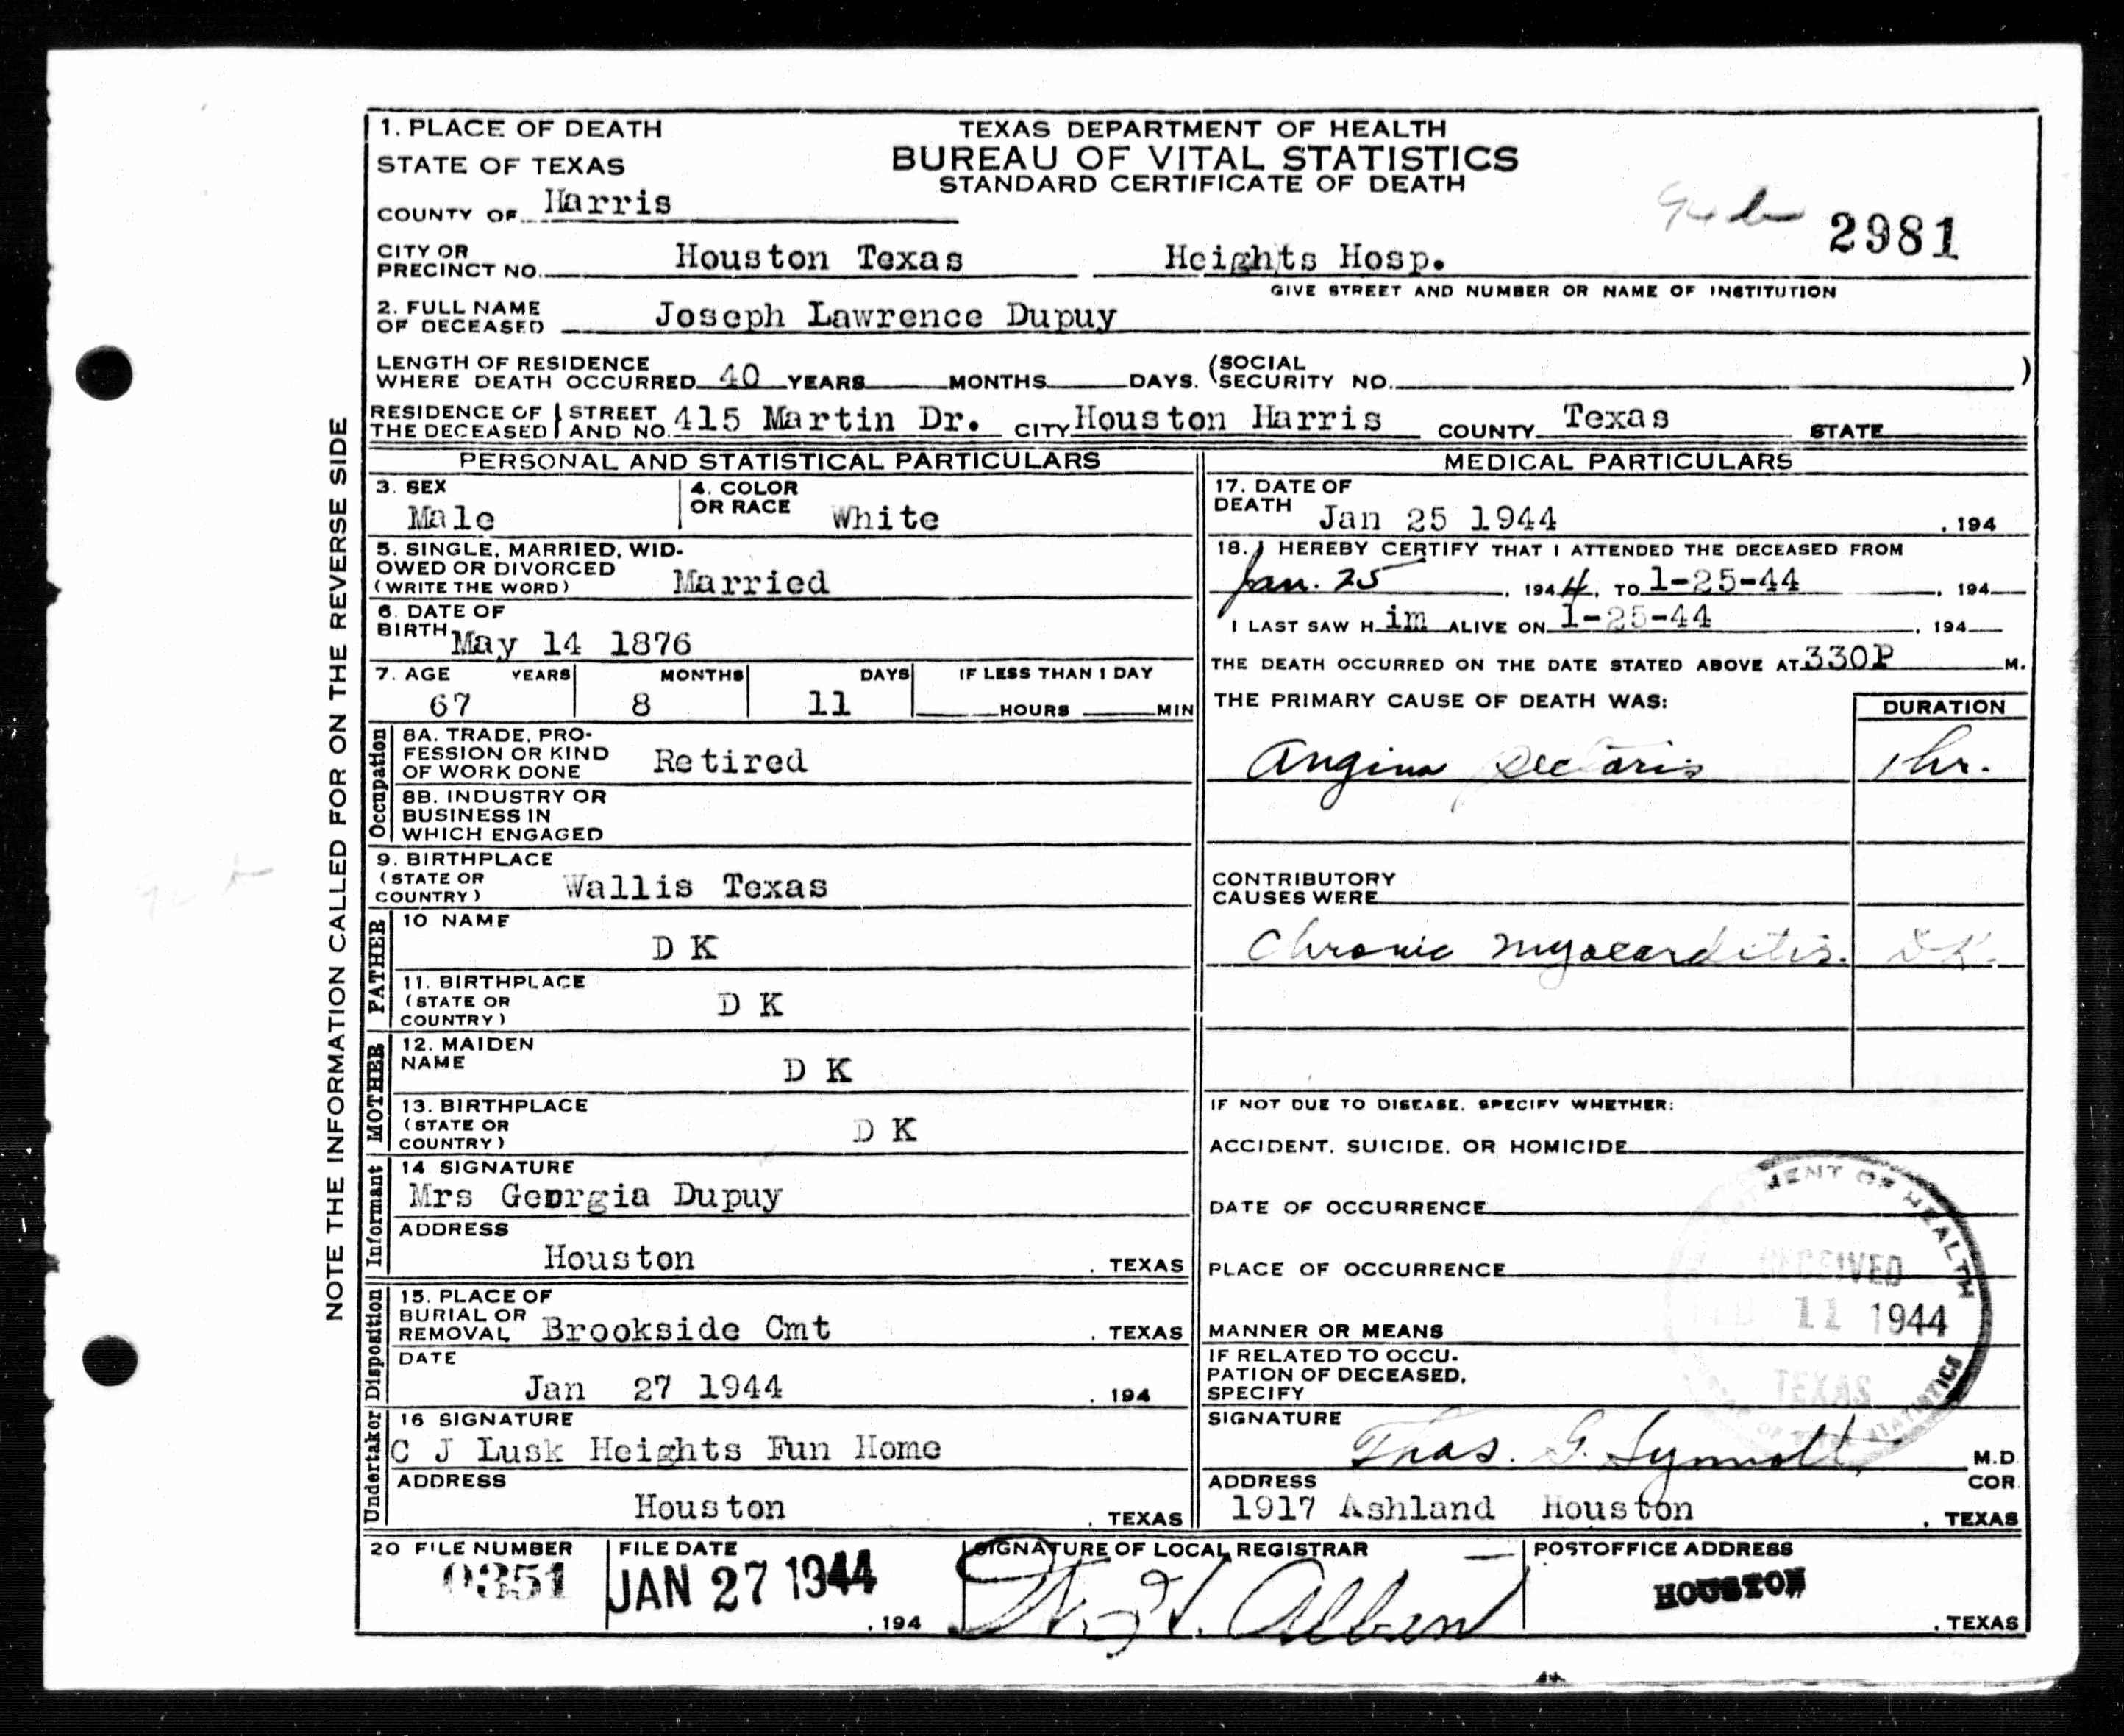 1. PLACE OF DEATH
STATE OF TEXAS
COUNTY OF Harris
TEXAS DEPARTMENT OF HEALTH
BUREAU OF VITAL STATISTICS
STANDARD CERTIFICATE OF DEATH
2981
CITY OR PRECINCT NO. Houston Texas Heights Hosp.
GIVE STREET AND NUMBER OR NAME OF INSTITUTION
2. FULL NAME OF DECEASED Joseph Lawrence Dupuy
LENGTH OF RESIDENCE
WHERE DEATH OCCURRED 40 YEARS MONTHS DAYS. (SOCIAL SECURITY NO. )
RESIDENCE OF THE DECEASED STREET AND NO. 415 Martin Dr. CITY Houston Harris COUNTY Texas STATE
NOTE THE INFORMATION CALLED FOR ON THE REVERSE SIDE
PERSONAL AND STATISTICAL PARTICULARS
3. SEX
Male
4. COLOR OR RACE White
5. SINGLE, MARRIED, WID-
OWED OR DIVORCED
(WRITE THE WORD) Married
6. DATE OF
BIRTH May 14 1876
7. AGE YEARS MONTHS DAYS IF LESS THAN 1 DAY
67 8 11 HOURS MIN
Occupation
8A. TRADE, PRO-
FESSION OR KIND
OF WORK DONE Retired
8B. INDUSTRY OR
BUSINESS IN
WHICH ENGAGED
9. BIRTHPLACE
(STATE OR
COUNTRY) Wallis Texas
FATHER
10 NAME
D K
11. BIRTHPLACE
(STATE OR
COUNTRY) D K
MOTHER
12. MAIDEN
NAME D K
13. BIRTHPLACE
(STATE OR
COUNTRY) D K
Informant
14 SIGNATURE
Mrs Georgia Dupuy
ADDRESS
Houston . TEXAS
Disposition
15. PLACE OF
BURIAL OR
REMOVAL Brookside Cmt . TEXAS
DATE
Jan 27 1944 . 194
Undertaker
16 SIGNATURE
C J Lusk Heights Fun Home
ADDRESS
Houston . TEXAS
MEDICAL PARTICULARS
17. DATE OF
DEATH Jan 25 1944 , 194
18. I HEREBY CERTIFY THAT I ATTENDED THE DECEASED FROM
Jan. 25 , 1944, TO 1-25-44 , 194
I LAST SAW H im ALIVE ON 1-25-44 , 194
THE DEATH OCCURRED ON THE DATE STATED ABOVE AT 330P M.
THE PRIMARY CAUSE OF DEATH WAS: DURATION
Angina Pectoris 1 hr.
CONTRIBUTORY
CAUSES WERE
Chronic myocarditis. DK.
IF NOT DUE TO DISEASE, SPECIFY WHETHER:
ACCIDENT, SUICIDE, OR HOMICIDE
DATE OF OCCURRENCE
PLACE OF OCCURRENCE
MANNER OR MEANS
IF RELATED TO OCCU-
PATION OF DECEASED,
SPECIFY
MENT OF HEALTH
RECEIVED
11 1944
TEXAS
STATISTICS
SIGNATURE Thos. G. M.D.
ADDRESS COR.
1917 Ashland Houston , TEXAS
20 FILE NUMBER
0351
FILE DATE
JAN 27 1944
. 194
SIGNATURE OF LOCAL REGISTRAR
POSTOFFICE ADDRESS
HOUSTON
. TEXAS